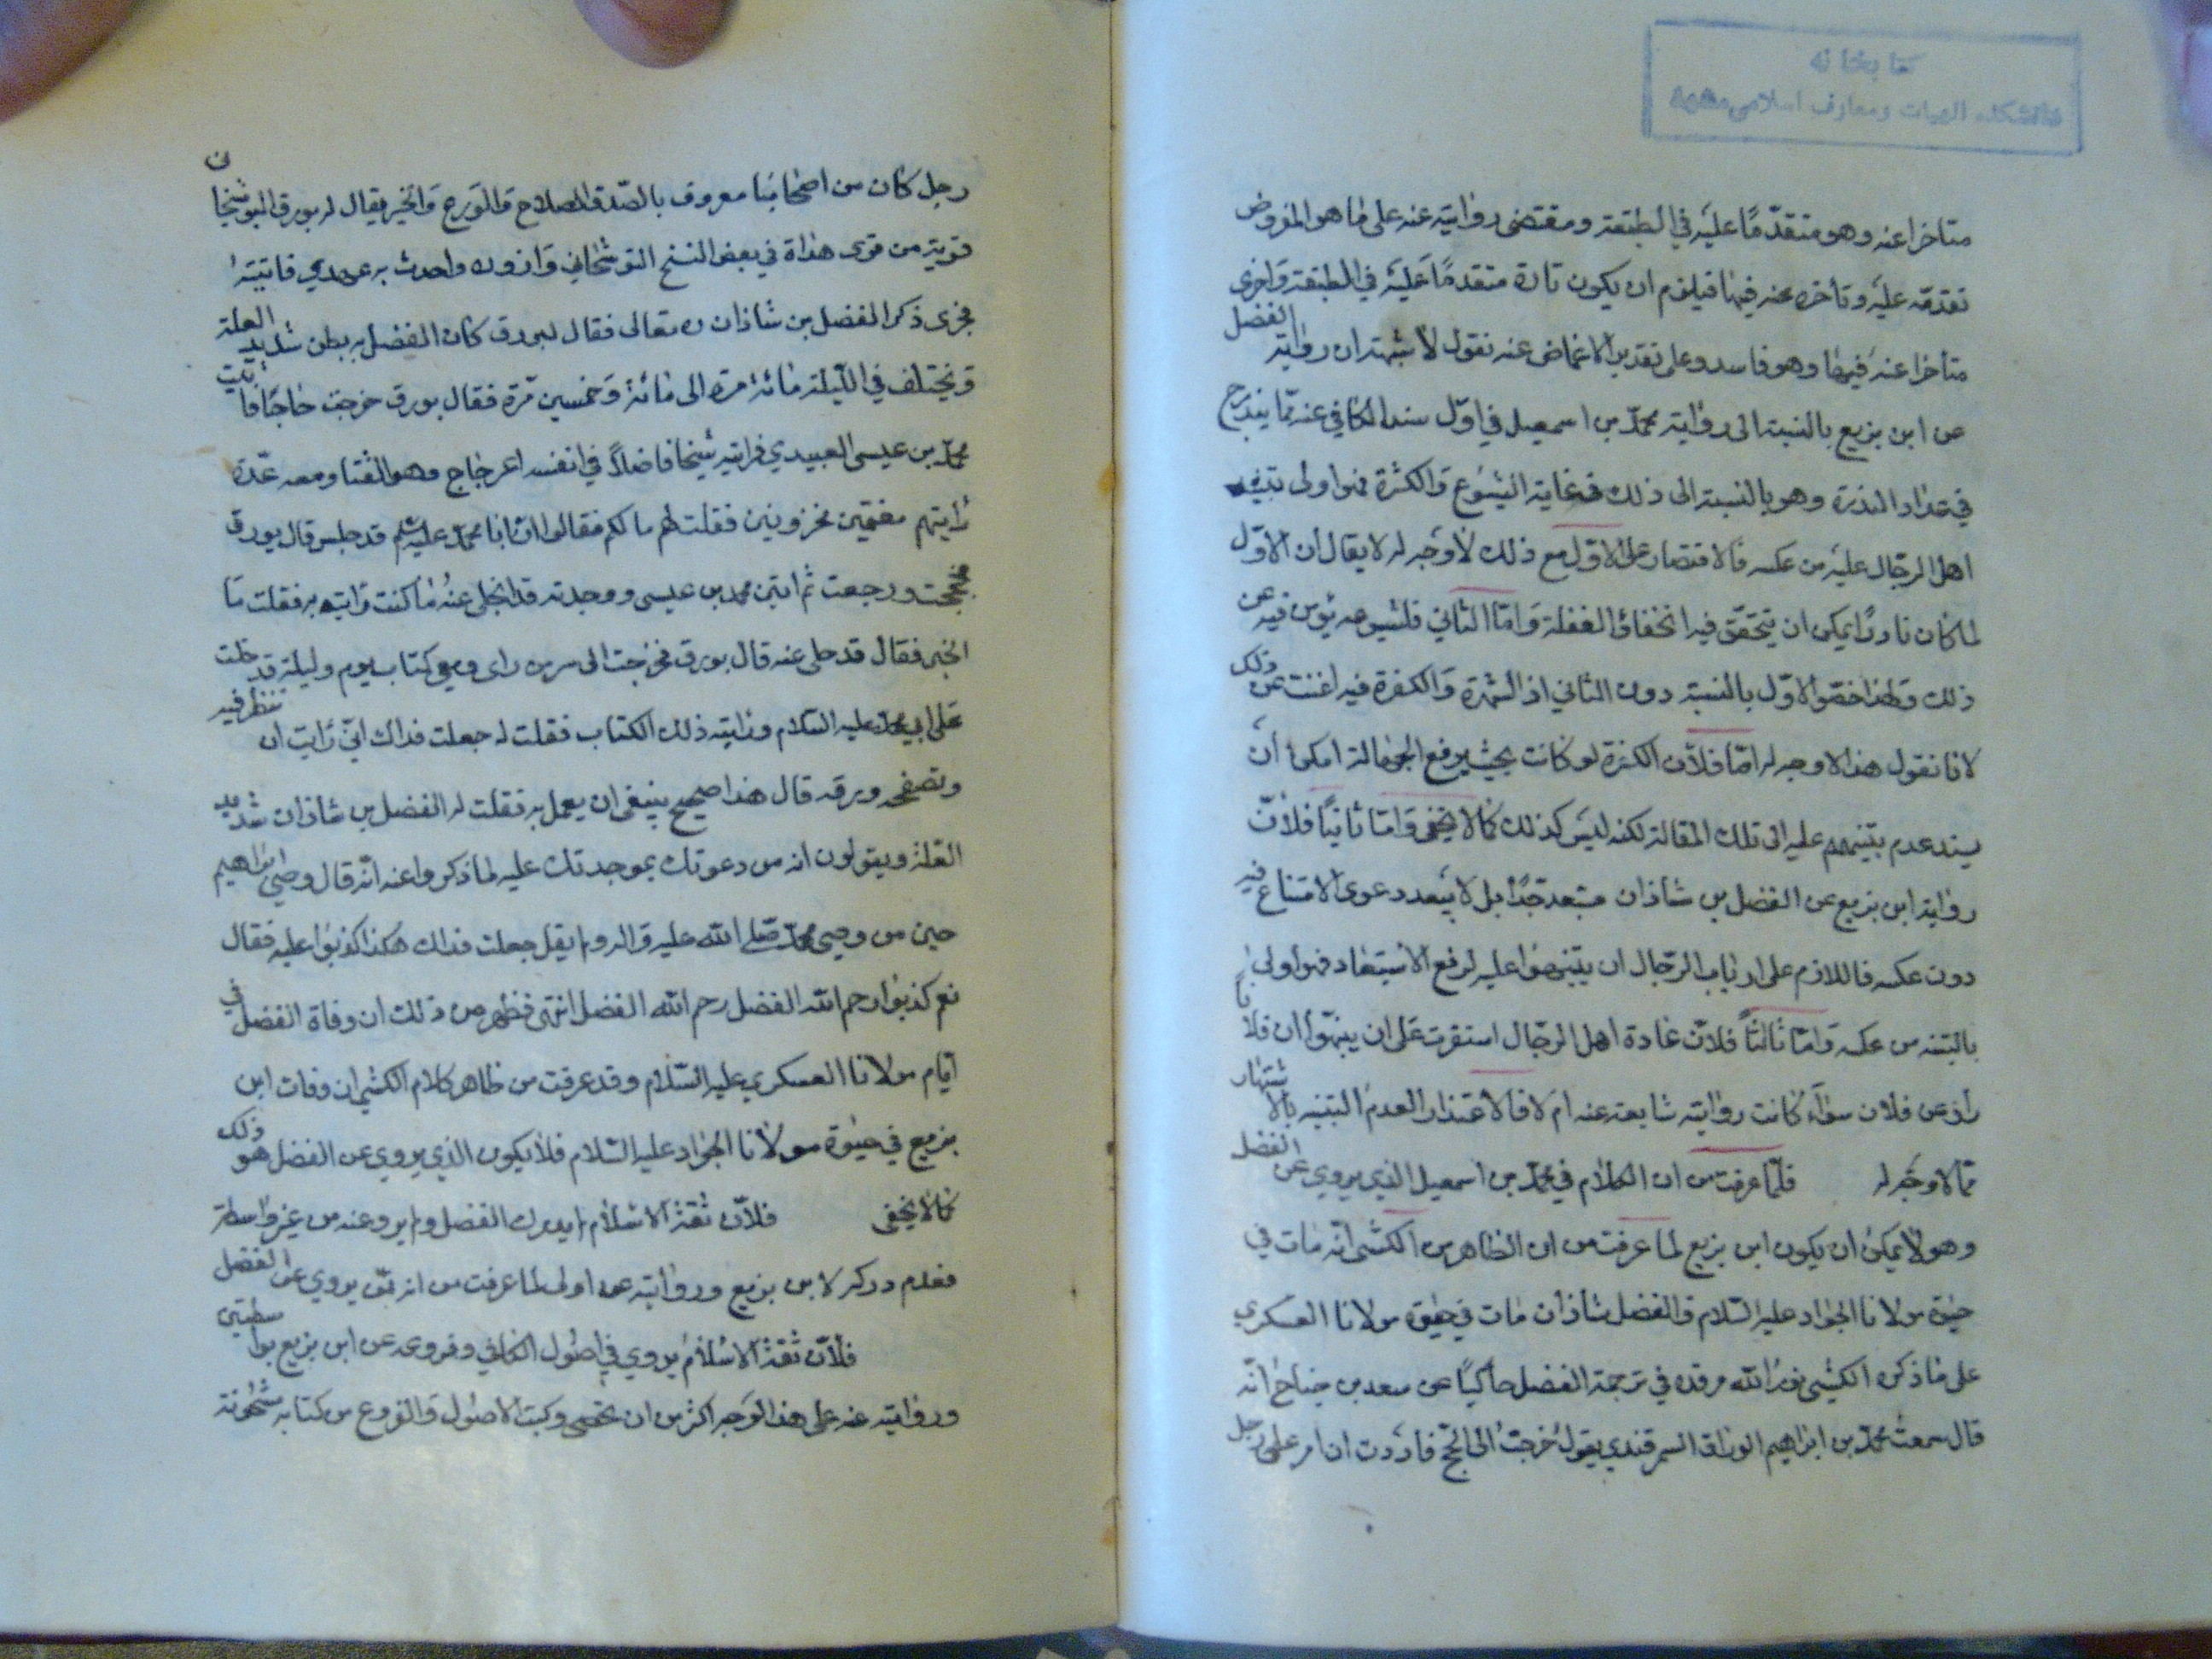 كتابخانه
دانشكده الهيات ومعارف اسلامى مشهد
متاخرا عنه وهو متقدّمًا عليه في الطبقة ومقتضى روايته عنه على ما هو المفروض
تقدمه عليه وتأخره عنه فيها فيلزم ان يكون تارة متقدمًا عليه في الطبقة واخرى
متأخرا عنه فيها وهو فاسد وعلى تقدير الاغماض عنه نقول لا شبهة ان رواية الفضل
عن ابن بزيع بالنسبة الى رواية محمد بن اسمعيل في اوّل سند الكافي عنه ممّا يندرج
في عداد الندرة وهو بالنسبة الى ذلك في غاية الشيوع والكثرة فهو اولى بتنبيه
اهل الرجال عليه من عكسه فالاقتصار على الاول مع ذلك لا وجه له لا يقال ان الاوّل
لما كان نادرًا يمكن ان يتحقق فيه الخفاء والغفلة وامّا الثاني فلشيوعه يؤمن فيه عن
ذلك ولهذا خصّوا الاوّل بالنسبة دون الثاني اذ الشهرة والكثرة فيه اغنت عن ذلك
لانا نقول هذا لا وجه له امّا فلأن الكثرة لو كانت بحيث يرفع الجهالة امكن أن
يسند عدم تنبيههم عليه الى تلك المقالة لكنه ليس كذلك كما لا يخفى وامّا ثانيًا فلأنّ
رواية ابن بزيع عن الفضل بن شاذان مستبعد جدًّا بل لا يبعد دعوى الامتناع فيه
دون عكسه فاللازم على ارباب الرجال ان يتنبهوا عليه لرفع الاستبعاد فهو اولى
بالتنبه من عكسه وامّا ثالثاً فلانّ عادة اهل الرجال استقرت على ان ينبهوا ان فلانا
راو عن فلان سواء كانت روايته شايعة عنه ام لا فالاعتذار لعدم التنبيه بالاشتهار
ممّا لا وجه له فلمّا عرفت من ان الكلام في محمّد بن اسمعيل الذي يروي عن الفضل
وهو لا يمكن ان يكون ابن بزيع لما عرفت من ان الظاهر من الكشى انّه مات في
حيٰوة مولانا الجواد عليه السّلام والفضل شاذان مات في حيٰوة مولانا العسكري
على ما ذكره الكشى نور الله مرقده في ترجمة الفضل حاكيًا عن سعد بن جناح انّه
قال سمعت محمّد بن ابراهيم الوراق السمرقندي يقول خرجت الى الحج فاردت ان امر على رجل
رجل كان من اصحابنا معروف بالصّدق والصلاح والورع والخير يقال له بورق البوشنجاني
قرية من قرى هراة في بعض النسخ التوشنجاني وازوره واحدث به عهدي فاتيته
فجرى ذكر الفضل بن شاذان ره تعالى فقال لبورق كان الفضل به بطن شديد العلة
ويختلف في الليلة مائة مرة الى مائة وخمسين مرّة فقال بورق خرجت حاجًا فاتيت
محمّد بن عيسى العبيدي فرايته شيخا فاضلاً في انفسه اعوجاج وهو القنا ومعه عدّة
رأيتهم مغتمّين محزونين فقلت لهم ما لكم فقالوا ان ابا محمّد عليه السلم قد حبس قال بورق
فحججت ورجعت ثم اتيت محمد بن عيسى ووجدته قد انجلى عنه ما كنت رايته به فقلت ما
الخبر فقال قد خلى عنه قال بورق فخرجت الى سر من راى ومعي كتاب يوم وليلة فدخلت
على ابي محمّد عليه السّلام ورايته ذلك الكتاب فقلت له جعلت فداك انّي رايت ان تنظر فيه
وتصفحه ورقه قال هذا صحيح ينبغى ان يعمل به فقلت له الفضل بن شاذان شديد
العلّة ويقولون انه من دعوتك بموجدتك عليه لما ذكروا عنه انّه قال وصي ابراهيم
حين من وصي محمّد صلى الله عليه واله ولم يقل جعلت فداك هكذا كذبوا عليه فقال
نعم كذبوا رحم الله الفضل رحم الله الفضل انتهى فظهر من ذلك ان وفاة الفضل في
ايّام مولانا العسكري عليه السّلام وقد عرفت من ظاهر كلام الكشي ان وفات ابن
بزيع في حيٰوة مولانا الجواد عليه السّلام فلا يكون الذي يروي عن الفضل هو ذلك
كما لا يخفى فلانّ ثقة الاسلام لم يدرك الفضل ولم يرو عنه من غير واسطة
فعدم دركه لابن بزيع وروايته عنه اولى لما عرفت من انه ممّن يروي عن الفضل
فلانّ ثقة الاسلام يروي في اصول الكافي وفروعه عن ابن بزيع بواسطتين
وروايته عنه على هذا الوجه اكثر من ان تحصى وكتب الاصول والفروع من كتابه مشحونة